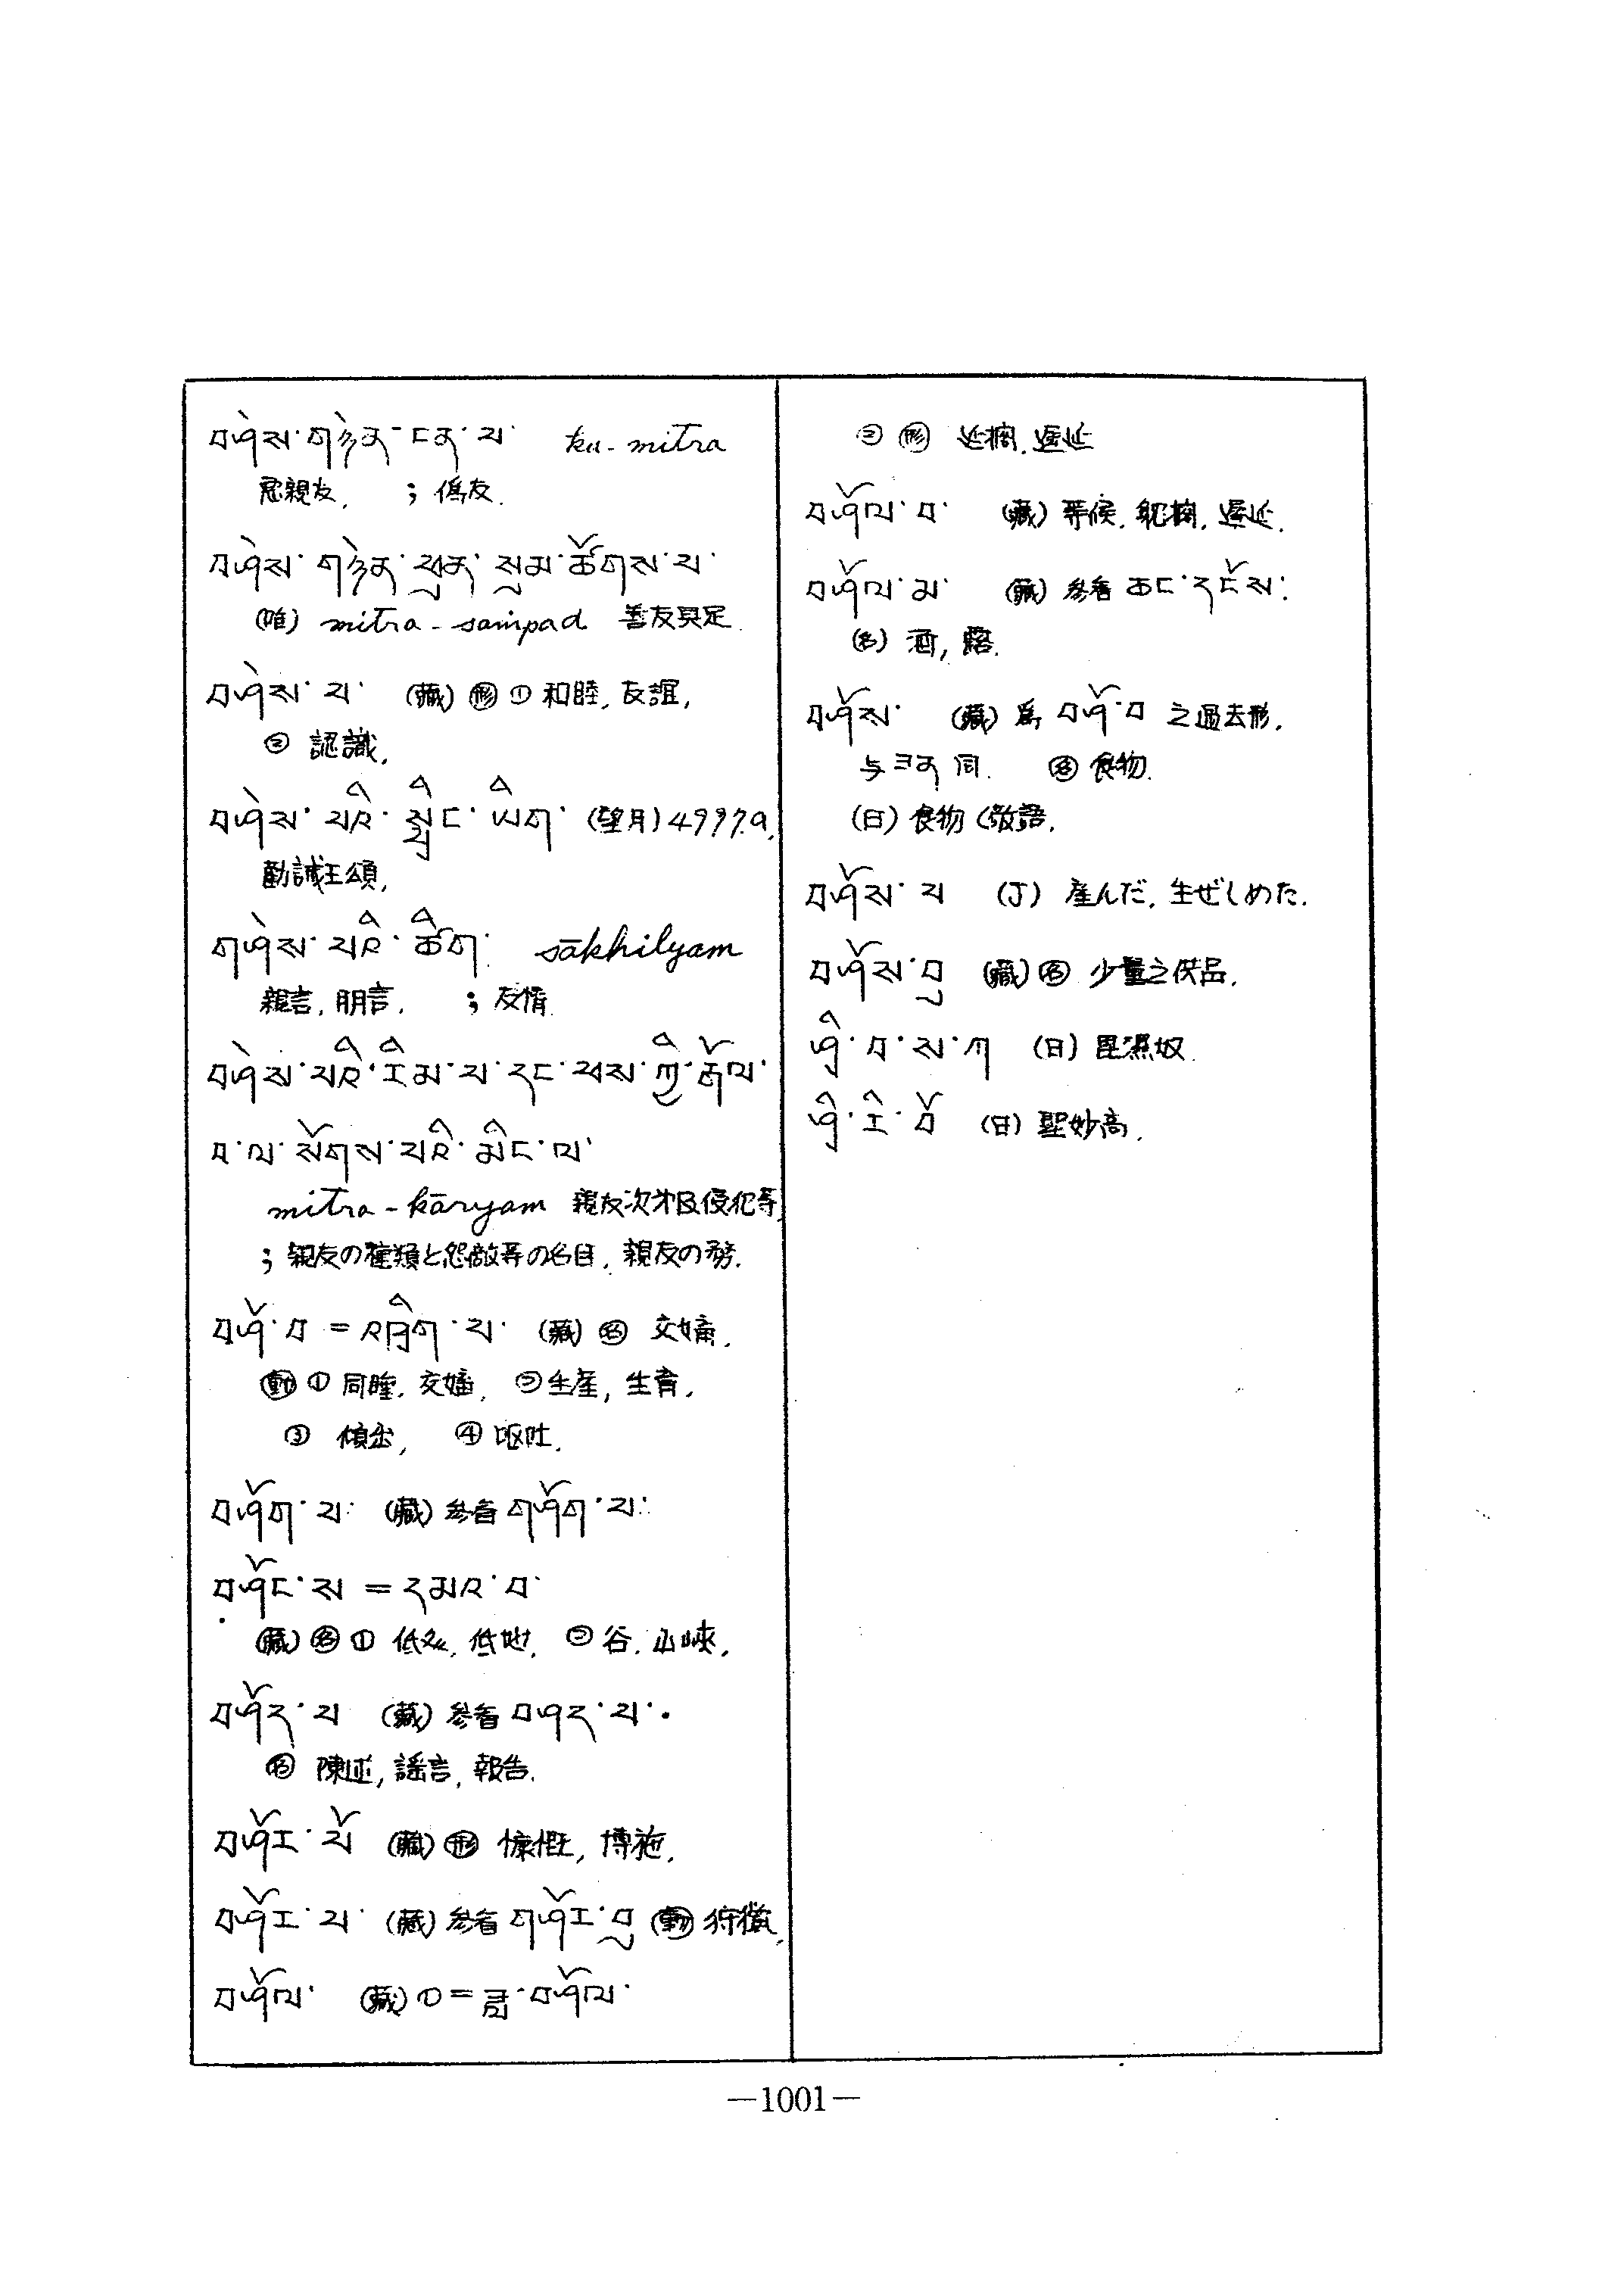 བཤེས་གཉེན་ངན་པ་ ku-mitra
惡親友. ; 偽友.
བཤེས་གཉེན་ཕུན་སུམ་ཚོགས་པ་
(唯) mitra-saṁpad 善友具足.
བཤེས་པ་ (藏) 形 ① 和睦, 友誼,
② 認識,
བཤེས་པའི་སྤྲིང་ཡིག་ (望月) 4997.a,
勸誡王頌,
གཤེས་པའི་ཚིག་ sākhilyam
親言, 朋言. ; 友情.
བཤེས་པའི་རིམ་པ་དང་ཕས་ཀྱི་རྒོལ་
བ་ལ་སོགས་པའི་མིང་ལ་
mitra-kāryam 親友次才及侵犯等,
; 親友の種類と怨敵等の名目, 親友の務.
བཤོ་བ = འཁྲིག་པ་ (藏) 名 交媾.
動 ① 同睡, 交媾, ② 生產, 生育.
③ 傾出, ④ 呕吐.
བཤོག་པ་ (藏) 參看 གཤོག་པ་
བཤོང་ས = དམའ་བ་
(藏) 名 ① 低處, 低地, ② 谷, 山峽.
བཤོད་པ (藏) 參看 བཤད་པ་.
名 陳述, 謠言, 報告.
བཤོར་པོ (藏) 形 慷慨, 博施.
བཤོར་པ་ (藏) 參看 གཤོར་བུ 動 狩獵,
བཤོལ་ (藏) ① = བཤོལ་
② 形 遲延
བཤོལ་བ་ (藏) 等候, 躭擱, 遲延.
བཤོལ་མ་ (藏) 參看 ཆང་དངོས་
(名) 酒, 露.
བཤོས་ (藏) 為 བཤོ་བ 之過去形,
与 ཟན 同. 名 食物.
(日) 食物 (敬語.
བཤོས་པ (丁) 産んだ, 生ぜしめた.
བཤོས་བུ (藏) 名 少量之供品.
ཤྲི་བ་ས་ཀ (日) 毘濕奴.
ཤྲི་རི་བོ (日) 聖妙高.
—1001—